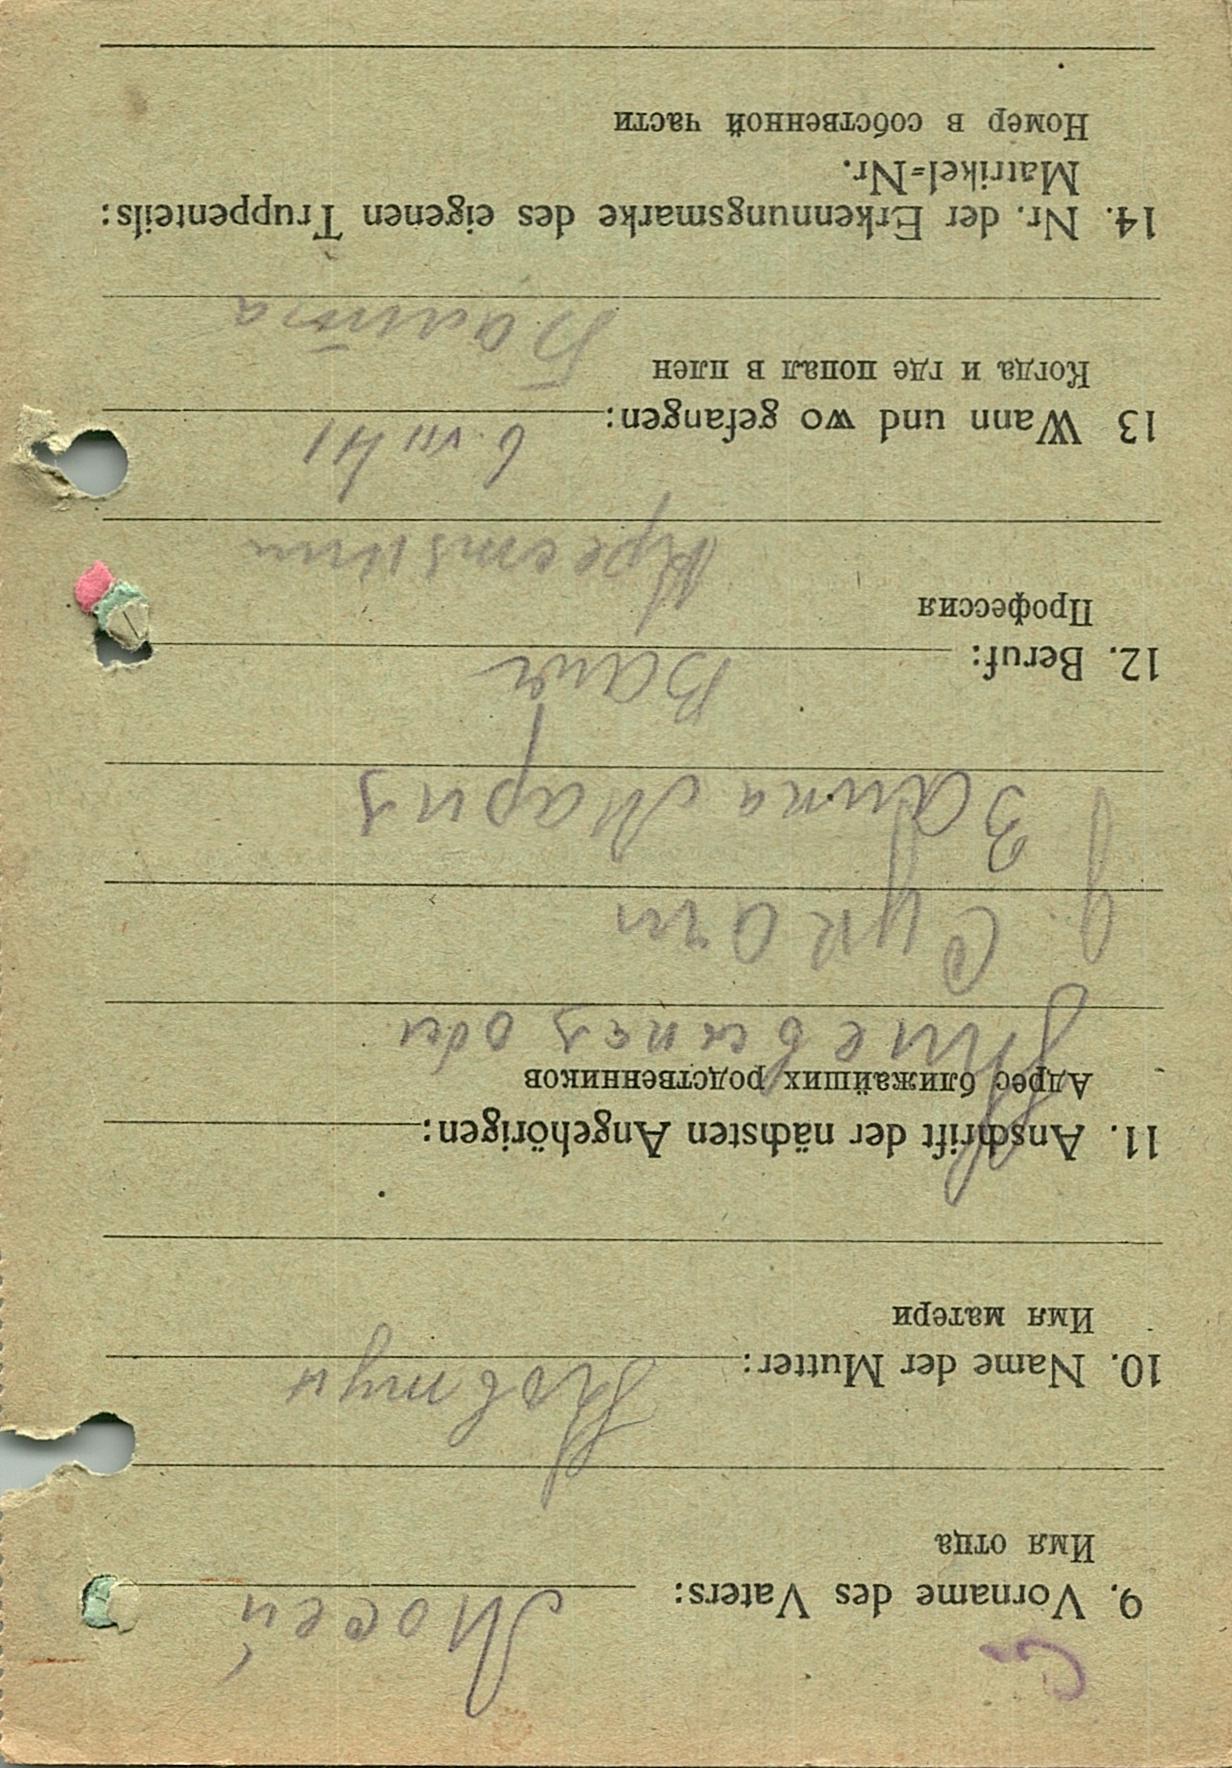 9. Vorname des Vaters: Мосей
Имя отца
10. Name der Mutter: Ковтун
Имя матери
11. Anschrift der nächsten Angehörigen:
Адрес ближайших родственников
Киевская обл
Заика Мария
12. Beruf:
Профессия
13 Wann und wo gefangen: 6 VII 41
Когда и где попал в плен
14. Nr. der Erkennungsmarke des eigenen Truppenteils:
Matrikel-Nr.
Номер в собственной части